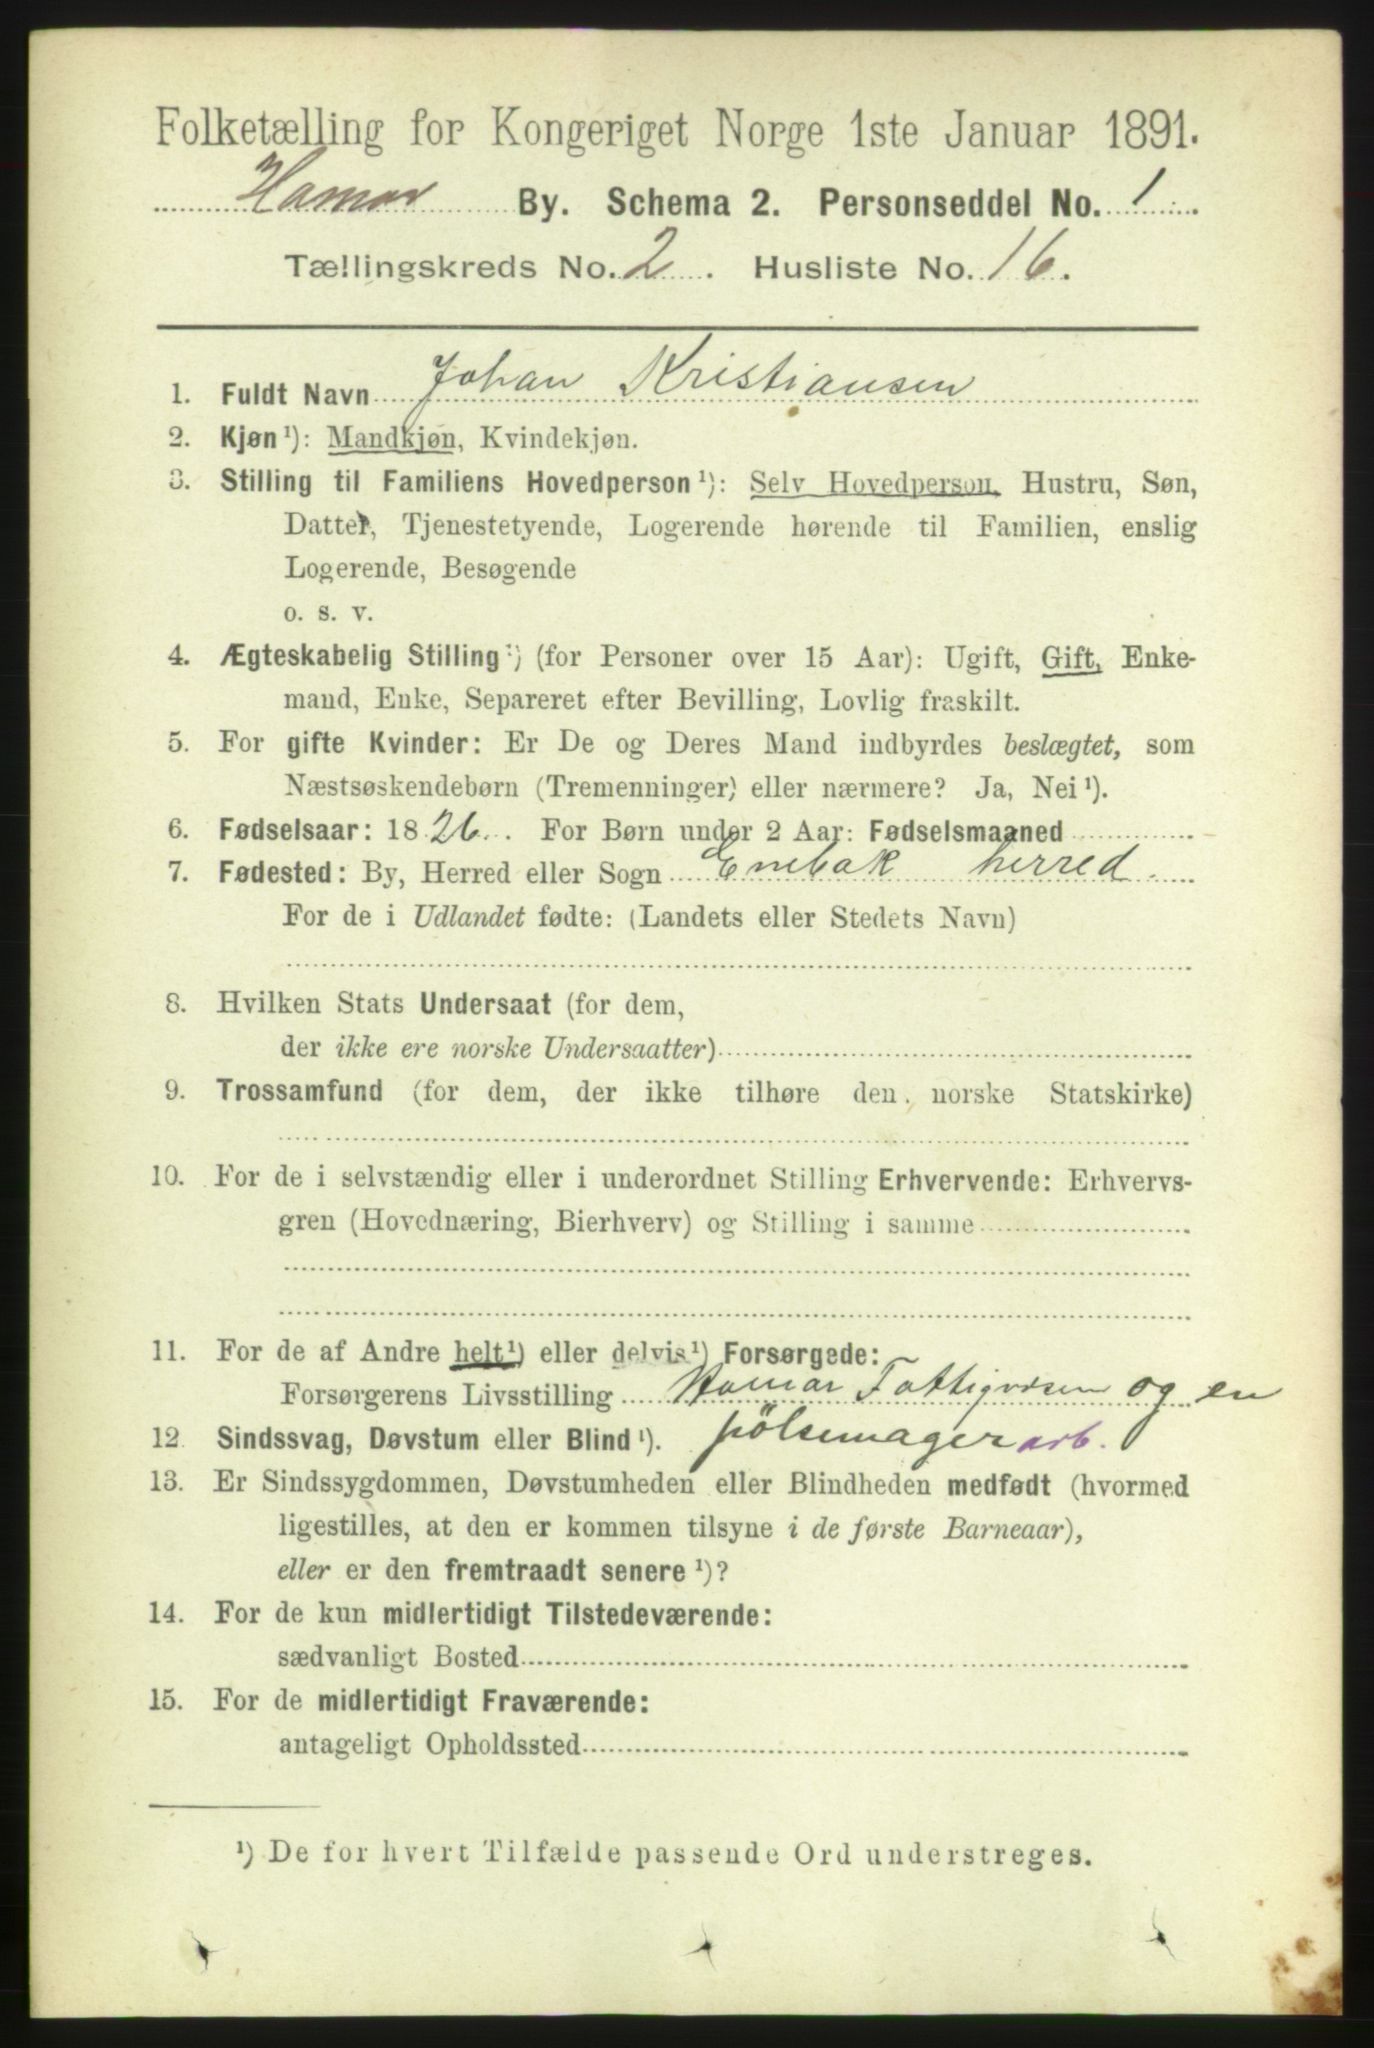 Folketælling for Kongeriget Norge 1ste Januar 1891.
Hamar By. Schema 2. Personseddel No. 1
Tællingskreds No. 2. Husliste No. 16.
1. Fuldt Navn Johan Kristiansen
2. Kjøn¹): Mandkjøn, Kvindekjøn.
3. Stilling til Familiens Hovedperson¹): Selv Hovedperson, Hustru, Søn,
Datter, Tjenestetyende, Logerende hørende til Familien, enslig
Logerende, Besøgende
o. s. v.
4. Ægteskabelig Stilling¹) (for Personer over 15 Aar): Ugift, Gift, Enke-
mand, Enke, Separeret efter Bevilling, Lovlig fraskilt.
5. For gifte Kvinder: Er De og Deres Mand indbyrdes beslægtet, som
Næstsøskendebørn (Tremenninger) eller nærmere? Ja, Nei¹).
6. Fødselsaar: 1826. For Børn under 2 Aar: Fødselsmaaned
7. Fødested: By, Herred eller Sogn Enebak herred.
For de i Udlandet fødte: (Landets eller Stedets Navn)
8. Hvilken Stats Undersaat (for dem,
der ikke ere norske Undersaatter)
9. Trossamfund (for dem, der ikke tilhøre den norske Statskirke)
10. For de i selvstændig eller i underordnet Stilling Erhvervende: Erhvervs-
gren (Hovednæring, Bierhverv) og Stilling i samme
11. For de af Andre helt¹) eller delvis¹) Forsørgede:
Forsørgerens Livsstilling Hamar Fattigvæsen og en
pölsemagerarb.
12. Sindssvag, Døvstum eller Blind¹).
13. Er Sindssygdommen, Døvstumheden eller Blindheden medfødt (hvormed
ligestilles, at den er kommen tilsyne i de første Barneaar),
eller er den fremtraadt senere¹)?
14. For de kun midlertidigt Tilstedeværende:
sædvanligt Bosted
15. For de midlertidigt Fraværende:
antageligt Opholdssted
¹) De for hvert Tilfælde passende Ord understreges.